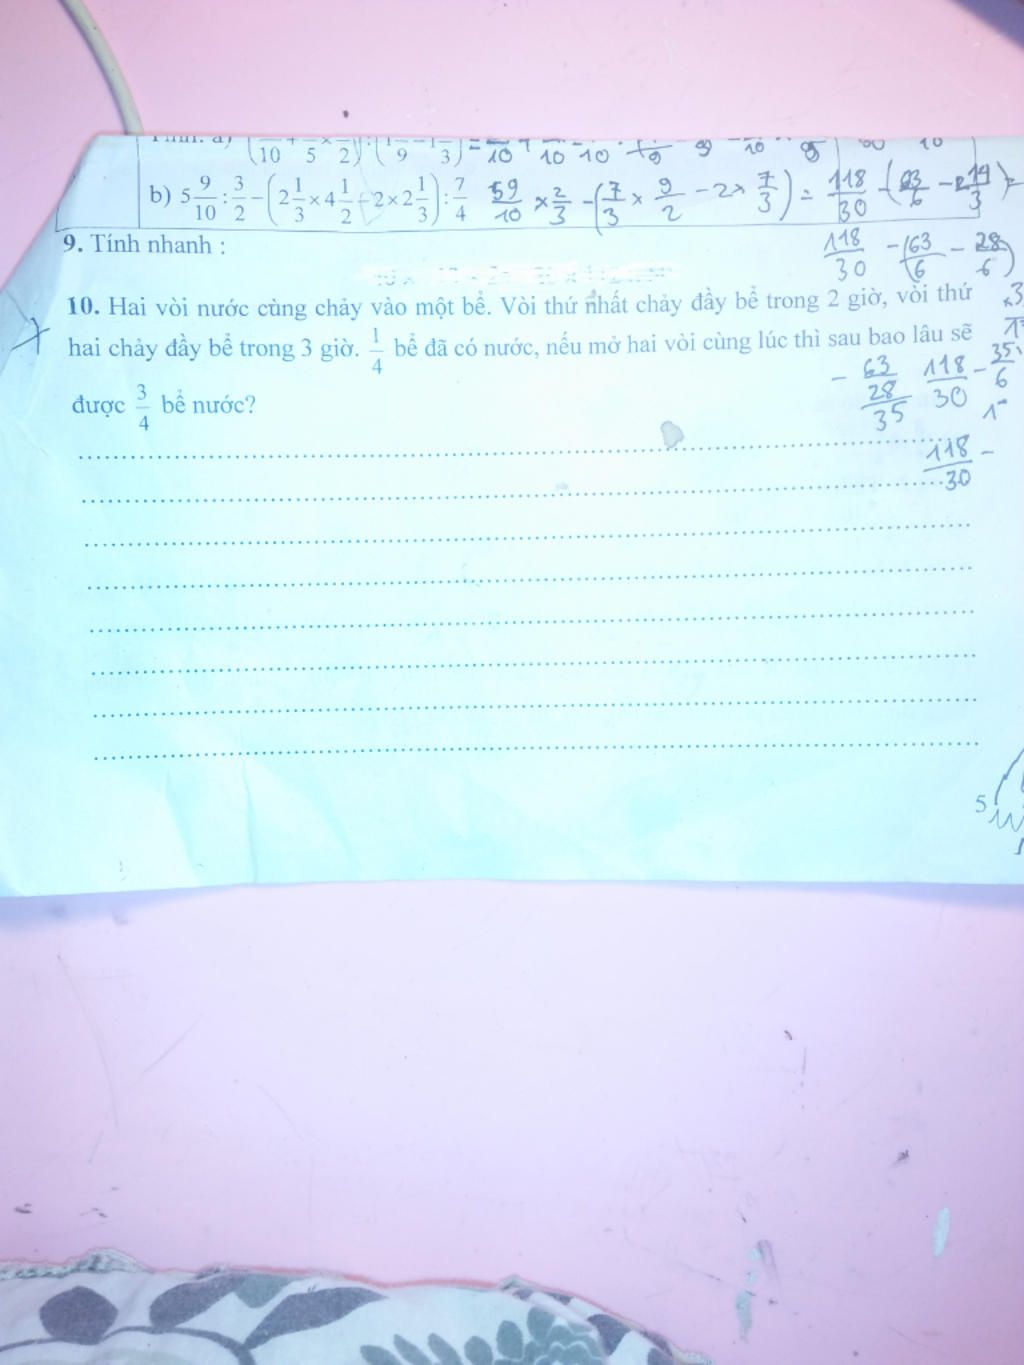 b) 5 9/10 : 3/2 − (2 1/3 × 4 1/2 − 2 × 2 1/3) : 7/4 59/10 × 2/3 − (7/3 × 9/2 − 2 × 7/3) = 118/30 − (63/6 − 2 14/3) =
9. Tính nhanh : 118/30 − (63/6 − 28/6)
10. Hai vòi nước cùng chảy vào một bể. Vòi thứ nhất chảy đầy bể trong 2 giờ, vòi thứ
hai chảy đầy bể trong 3 giờ. 1/4 bể đã có nước, nếu mở hai vòi cùng lúc thì sau bao lâu sẽ
được 3/4 bể nước? − 63 28 35 118/30 − 35/6
118/30 −
5